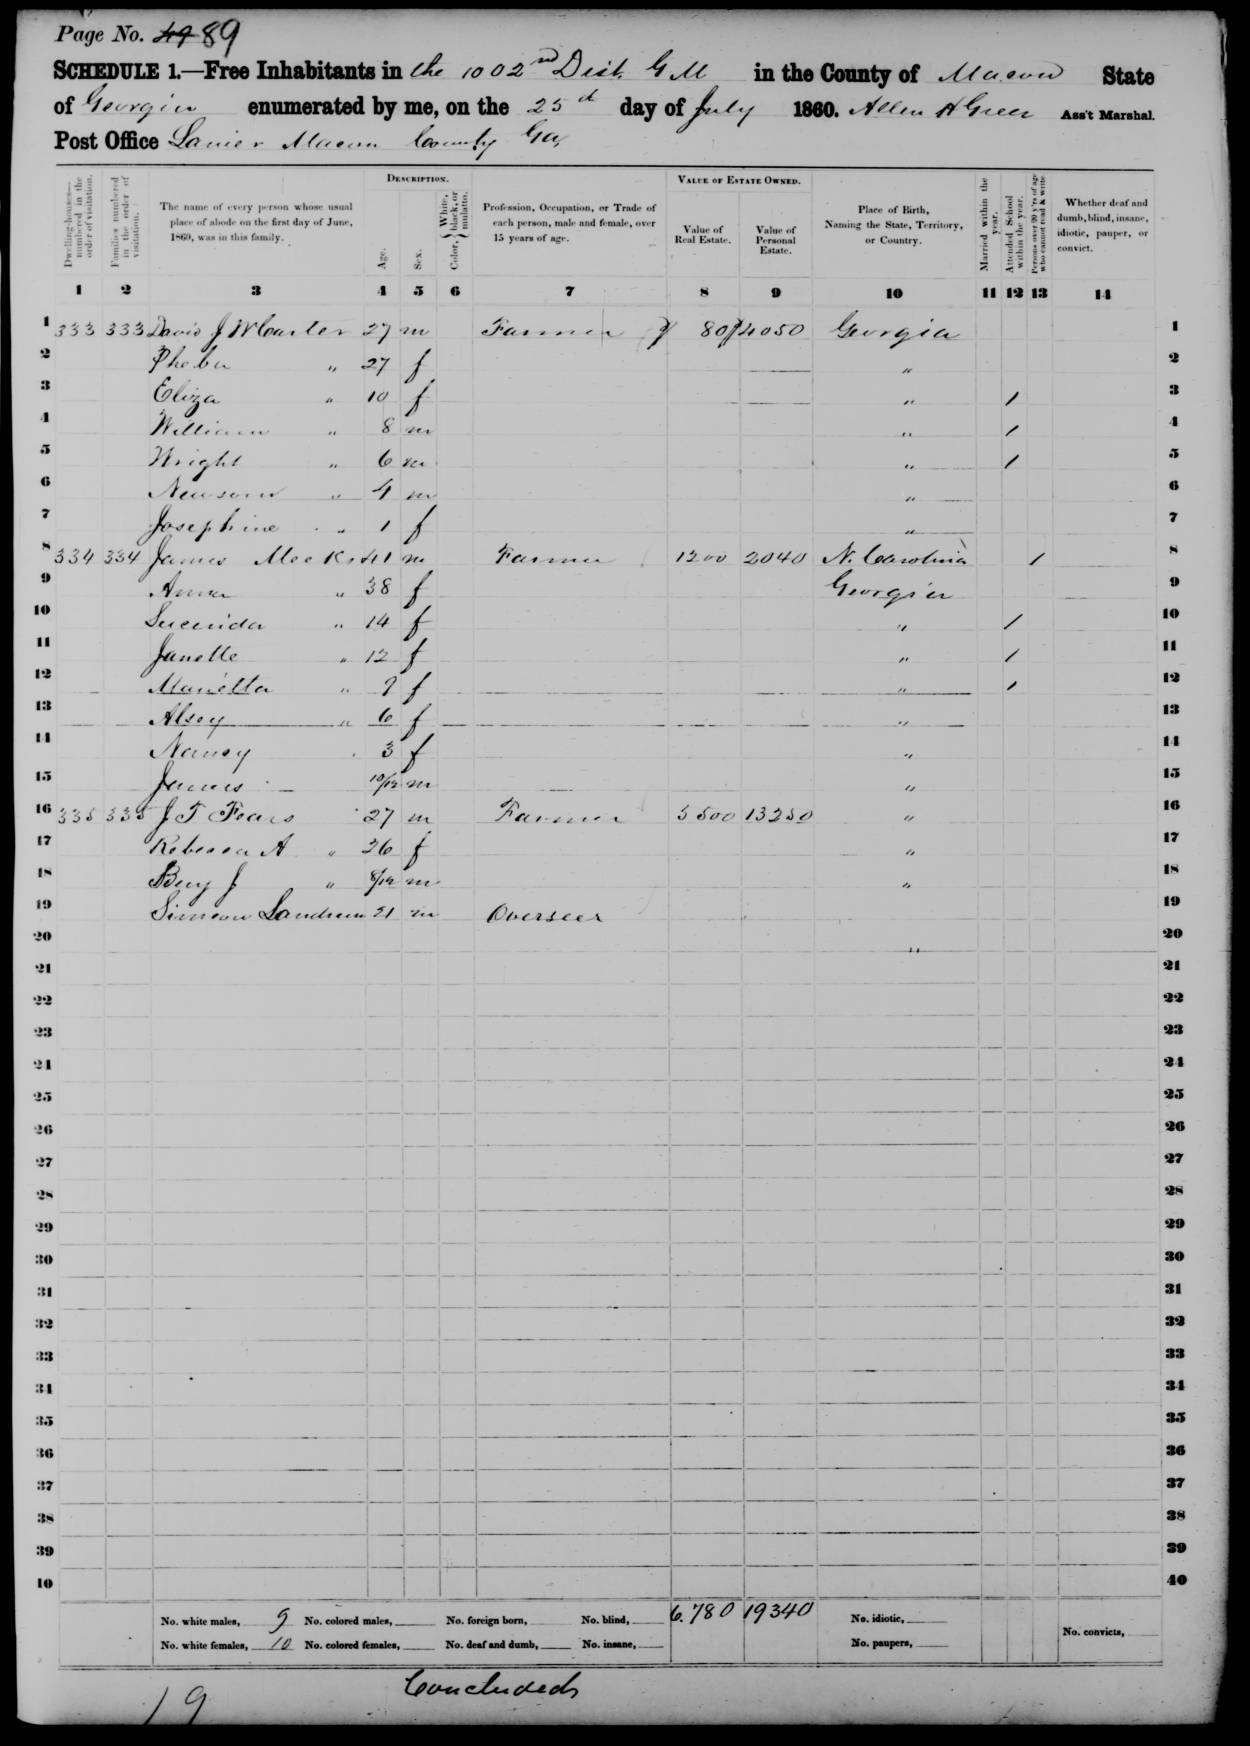 Page No. 49 89
SCHEDULE 1.—Free Inhabitants in the 1002nd Dist. G M in the County of Macon State
of Georgia enumerated by me, on the 25th day of July 1860. Allen H Greer Ass't Marshal.
Post Office Lanier Macon County Ga,
Dwelling-houses—numbered in the order of visitation.
Families numbered in the order of visitation.
The name of every person whose usual place of abode on the first day of June, 1860, was in this family.
DESCRIPTION.
Age.
Sex.
Color, { White, black, or mulatto.
Profession, Occupation, or Trade of each person, male and female, over 15 years of age.
VALUE OF ESTATE OWNED.
Value of Real Estate.
Value of Personal Estate.
Place of Birth, Naming the State, Territory, or Country.
Married within the year.
Attended School within the year.
Persons over 20 y'rs of age who cannot read & write.
Whether deaf and dumb, blind, insane, idiotic, pauper, or convict.
1 2 3 4 5 6 7 8 9 10 11 12 13 14
1 333 333 David J W Carter 27 m Farmer 80 4050 Georgia 1
2 Pheba " 27 f " 2
3 Eliza " 10 f " / 3
4 William " 8 m " / 4
5 Wright " 6 m " / 5
6 Newsom " 4 m " 6
7 Josephine " 1 f " 7
8 334 334 James Meeks 41 m Farmer 1200 2040 N. Carolina / 8
9 Anna " 38 f Georgia 9
10 Lucinda " 14 f " / 10
11 Janette " 12 f " / 11
12 Marietta " 9 f " / 12
13 Alsey " 6 f " 13
14 Nancy 3 f " 14
15 James 10/12 m " 15
16 335 335 J T Fears 27 m Farmer 5500 13250 " 16
17 Rebecca A " 26 f " 17
18 Benj J " 8/12 m " 18
19 Simeon Landrum 21 m Overseer 19
20 " 20
21 21
22 22
23 23
24 24
25 25
26 26
27 27
28 28
29 29
30 30
31 31
32 32
33 33
34 34
35 35
36 36
37 37
38 38
39 39
40 40
No. white males, 9 No. colored males, No. foreign born, No. blind, 6.780 19340 No. idiotic,
No. white females, 10 No. colored females, No. deaf and dumb, No. insane, No. paupers, No. convicts,
Concluded
19